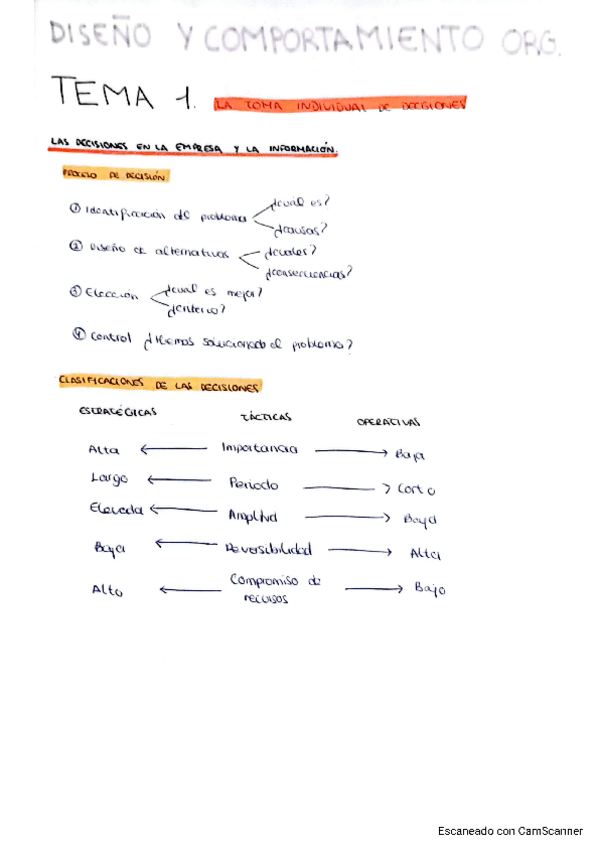 DISEÑO Y COMPORTAMIENTO ORG.
TEMA 1. LA TOMA INDIVIDUAL DE DECISIONES
LAS DECISIONES EN LA EMPRESA Y LA INFORMACIÓN.
PROCESO DE DECISIÓN
① Identificación del problema ¿cuál es?
¿causas?
② Diseño de alternativas ¿cuales?
¿consecuencias?
③ Elección ¿cual es mejor?
¿criterio?
④ Control ¿Hemos solucionado el problema?
CLASIFICACIONES DE LAS DECISIONES
ESTRATÉGICAS TÁCTICAS OPERATIVAS
Alta ← Importancia → Baja
Largo ← Periodo → Corto
Elevada ← Amplitud → Baja
Baja ← Reversibilidad → Alta
Alto ← Compromiso de recursos → Bajo
Escaneado con CamScanner